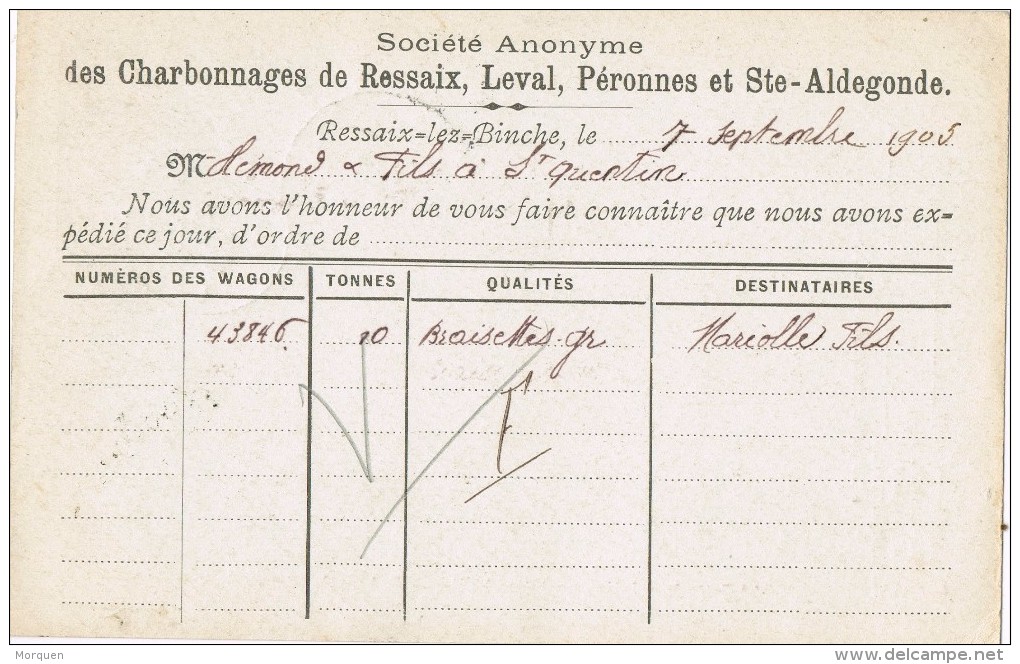 Société Anonyme
des Charbonnages de Ressaix, Leval, Péronnes et Ste-Aldegonde.
Ressaix=lez=Binche, le 7 septembre 1905
M Hémond & Fils à St Quentin
Nous avons l'honneur de vous faire connaître que nous avons ex=
pédié ce jour, d'ordre de
NUMÈROS DES WAGONS TONNES QUALITÉS DESTINATAIRES
43846 10 Braisettes gr Mariolle Fils.
Morquen